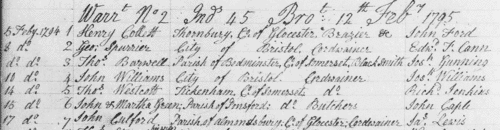 Warrt No 2 Ind 45 Brot 12th Feby 1795
5 Feby 1794 1 Henry Collett Thornbury, Co of Glocester Brazier &c John Ford
8 do 2 Geo: Spurrier City of Bristol, Cordwainer Edwd T. Cann
do do 3 Thos Bagwell Parish of Bedminster, Co of Somerset, Black Smith Jos: Gunning
10 do 4 John Williams City of Bristol. Cordwainer Jos: Williams
14 do 5 Thos Westcott Tickenham, Co of Somerset, do Richd Jenkins
16 do 6 John & Martha Green; Parish of do Butchers John Caple
17 do 7 John Parish of Almondsbury, Co of Glocester; Cordwainer Jas: Lewis